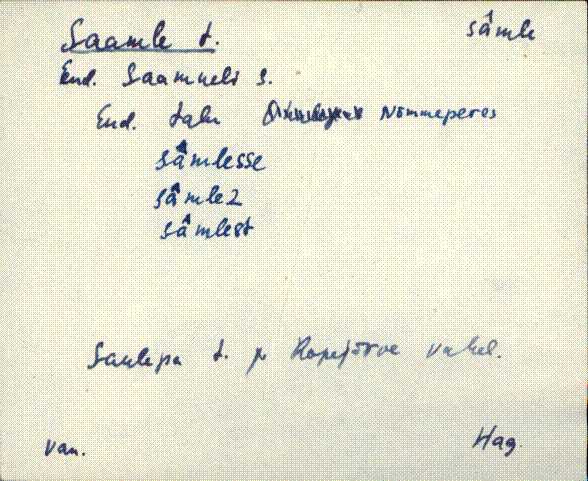 Saamle t. sâmle
End. Saamueli s.
End. talu Nõmmeperes
sâmlesse
sâmlez
sâmlest
t. ja Kopejärve vahel.
Van. Hag.